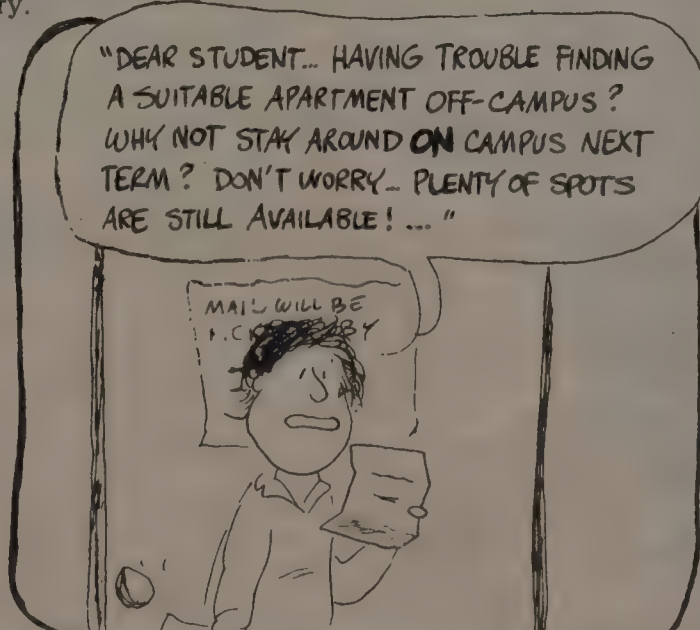 ry.
"DEAR STUDENT... HAVING TROUBLE FINDING
A SUITABLE APARTMENT OFF-CAMPUS?
WHY NOT STAY AROUND ON CAMPUS NEXT
TERM? DON'T WORRY... PLENTY OF SPOTS
ARE STILL AVAILABLE! ... "
MAIL WILL BE
BY